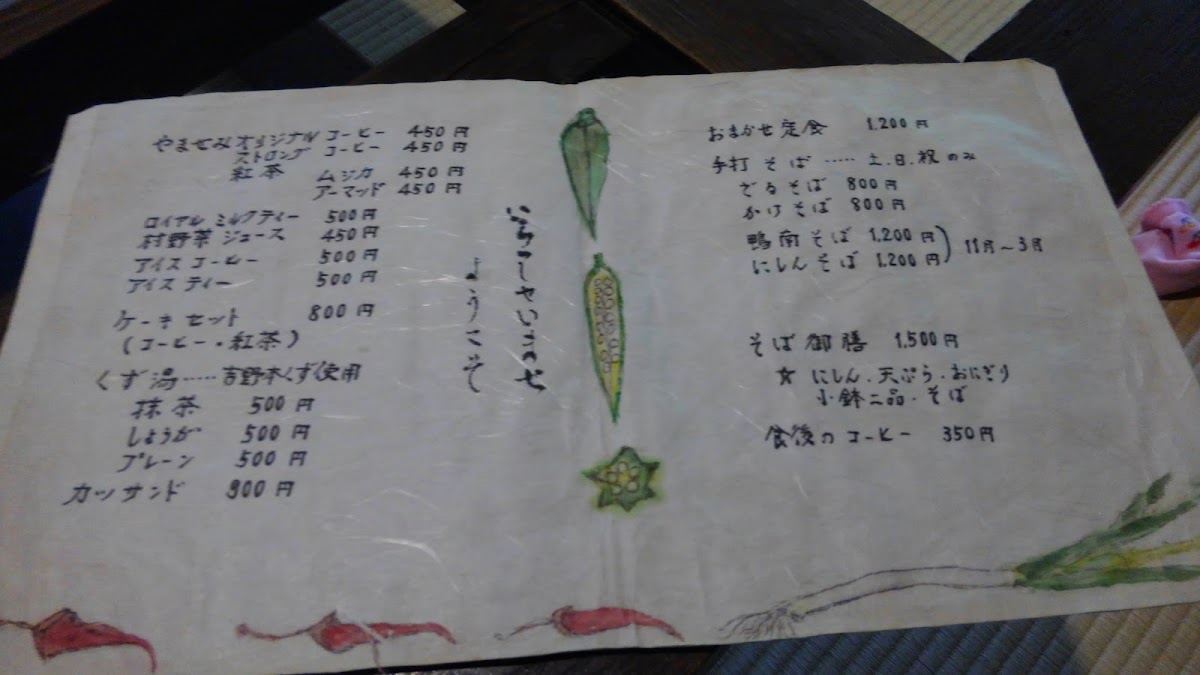 やませみオリジナル コーヒー 450円
ストロング コーヒー 450円
紅茶 ムジカ 450円
アーマッド 450円
ロイヤル ミルクティー 500円
村野菜 ジュース 450円
アイス コーヒー 500円
アイス ティー 500円
ケーキ セット 800円
(コーヒー・紅茶)
くず湯……吉野本くず使用
抹茶 500円
しょうが 500円
プレーン 500円
カツサンド 900円
いらっしゃいませ
ようこそ
おまかせ定食 1,200円
手打そば……土.日.祝のみ
ざるそば 800円
かけそば 800円
鴨南そば 1,200円
にしんそば 1,200円
11月〜3月
そば御膳 1,500円
☆ にしん.天ぷら.おにぎり
小鉢二品.そば
食後のコーヒー 350円